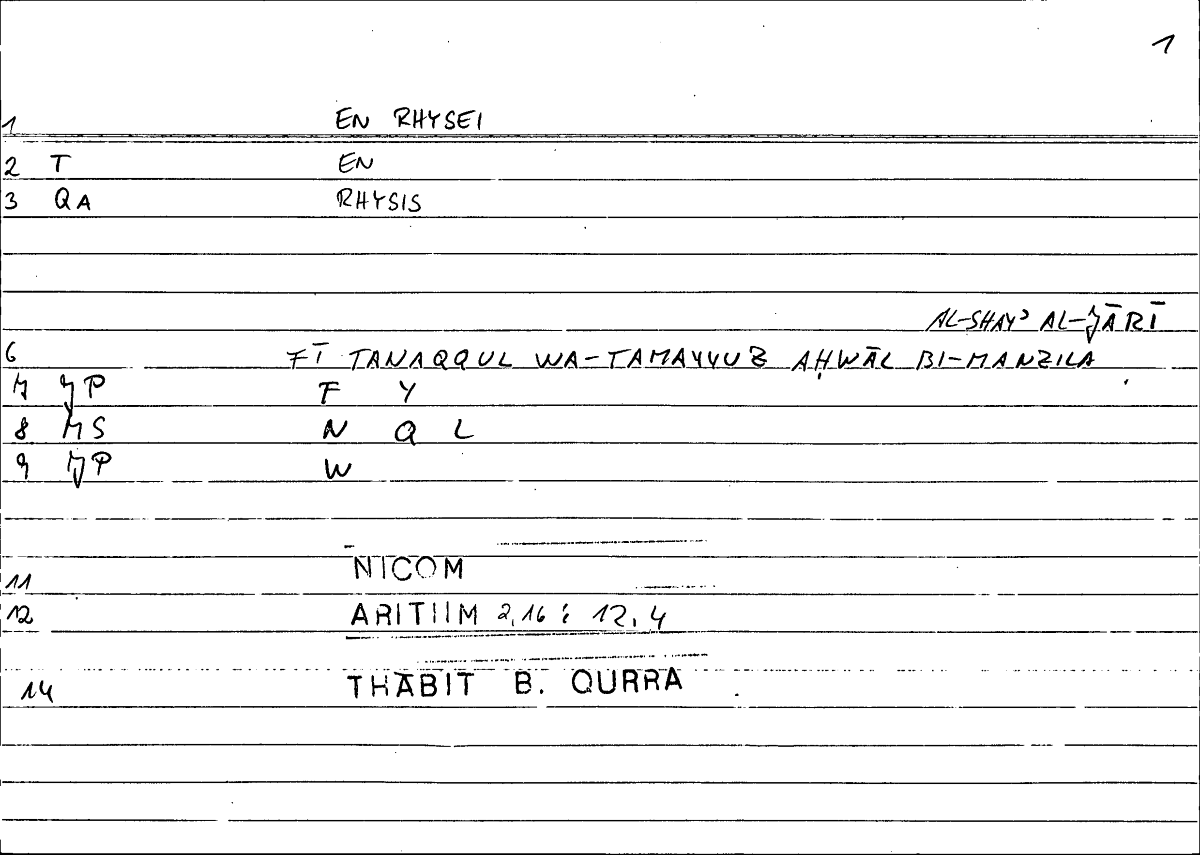 1
1 EN RHYSEI
2 T EN
3 QA RHYSIS
AL-SHAYʾ AL-JĀRĪ
6 FĪ TANAQQUL WA-TAMAYYUZ AḤWĀL BI-MANZILA
7 JP F Y
8 MS N Q L
9 JP W
11 NICOM
12 ARITIIM 2,16 : 12,4
14 THĀBIT B. QURRA